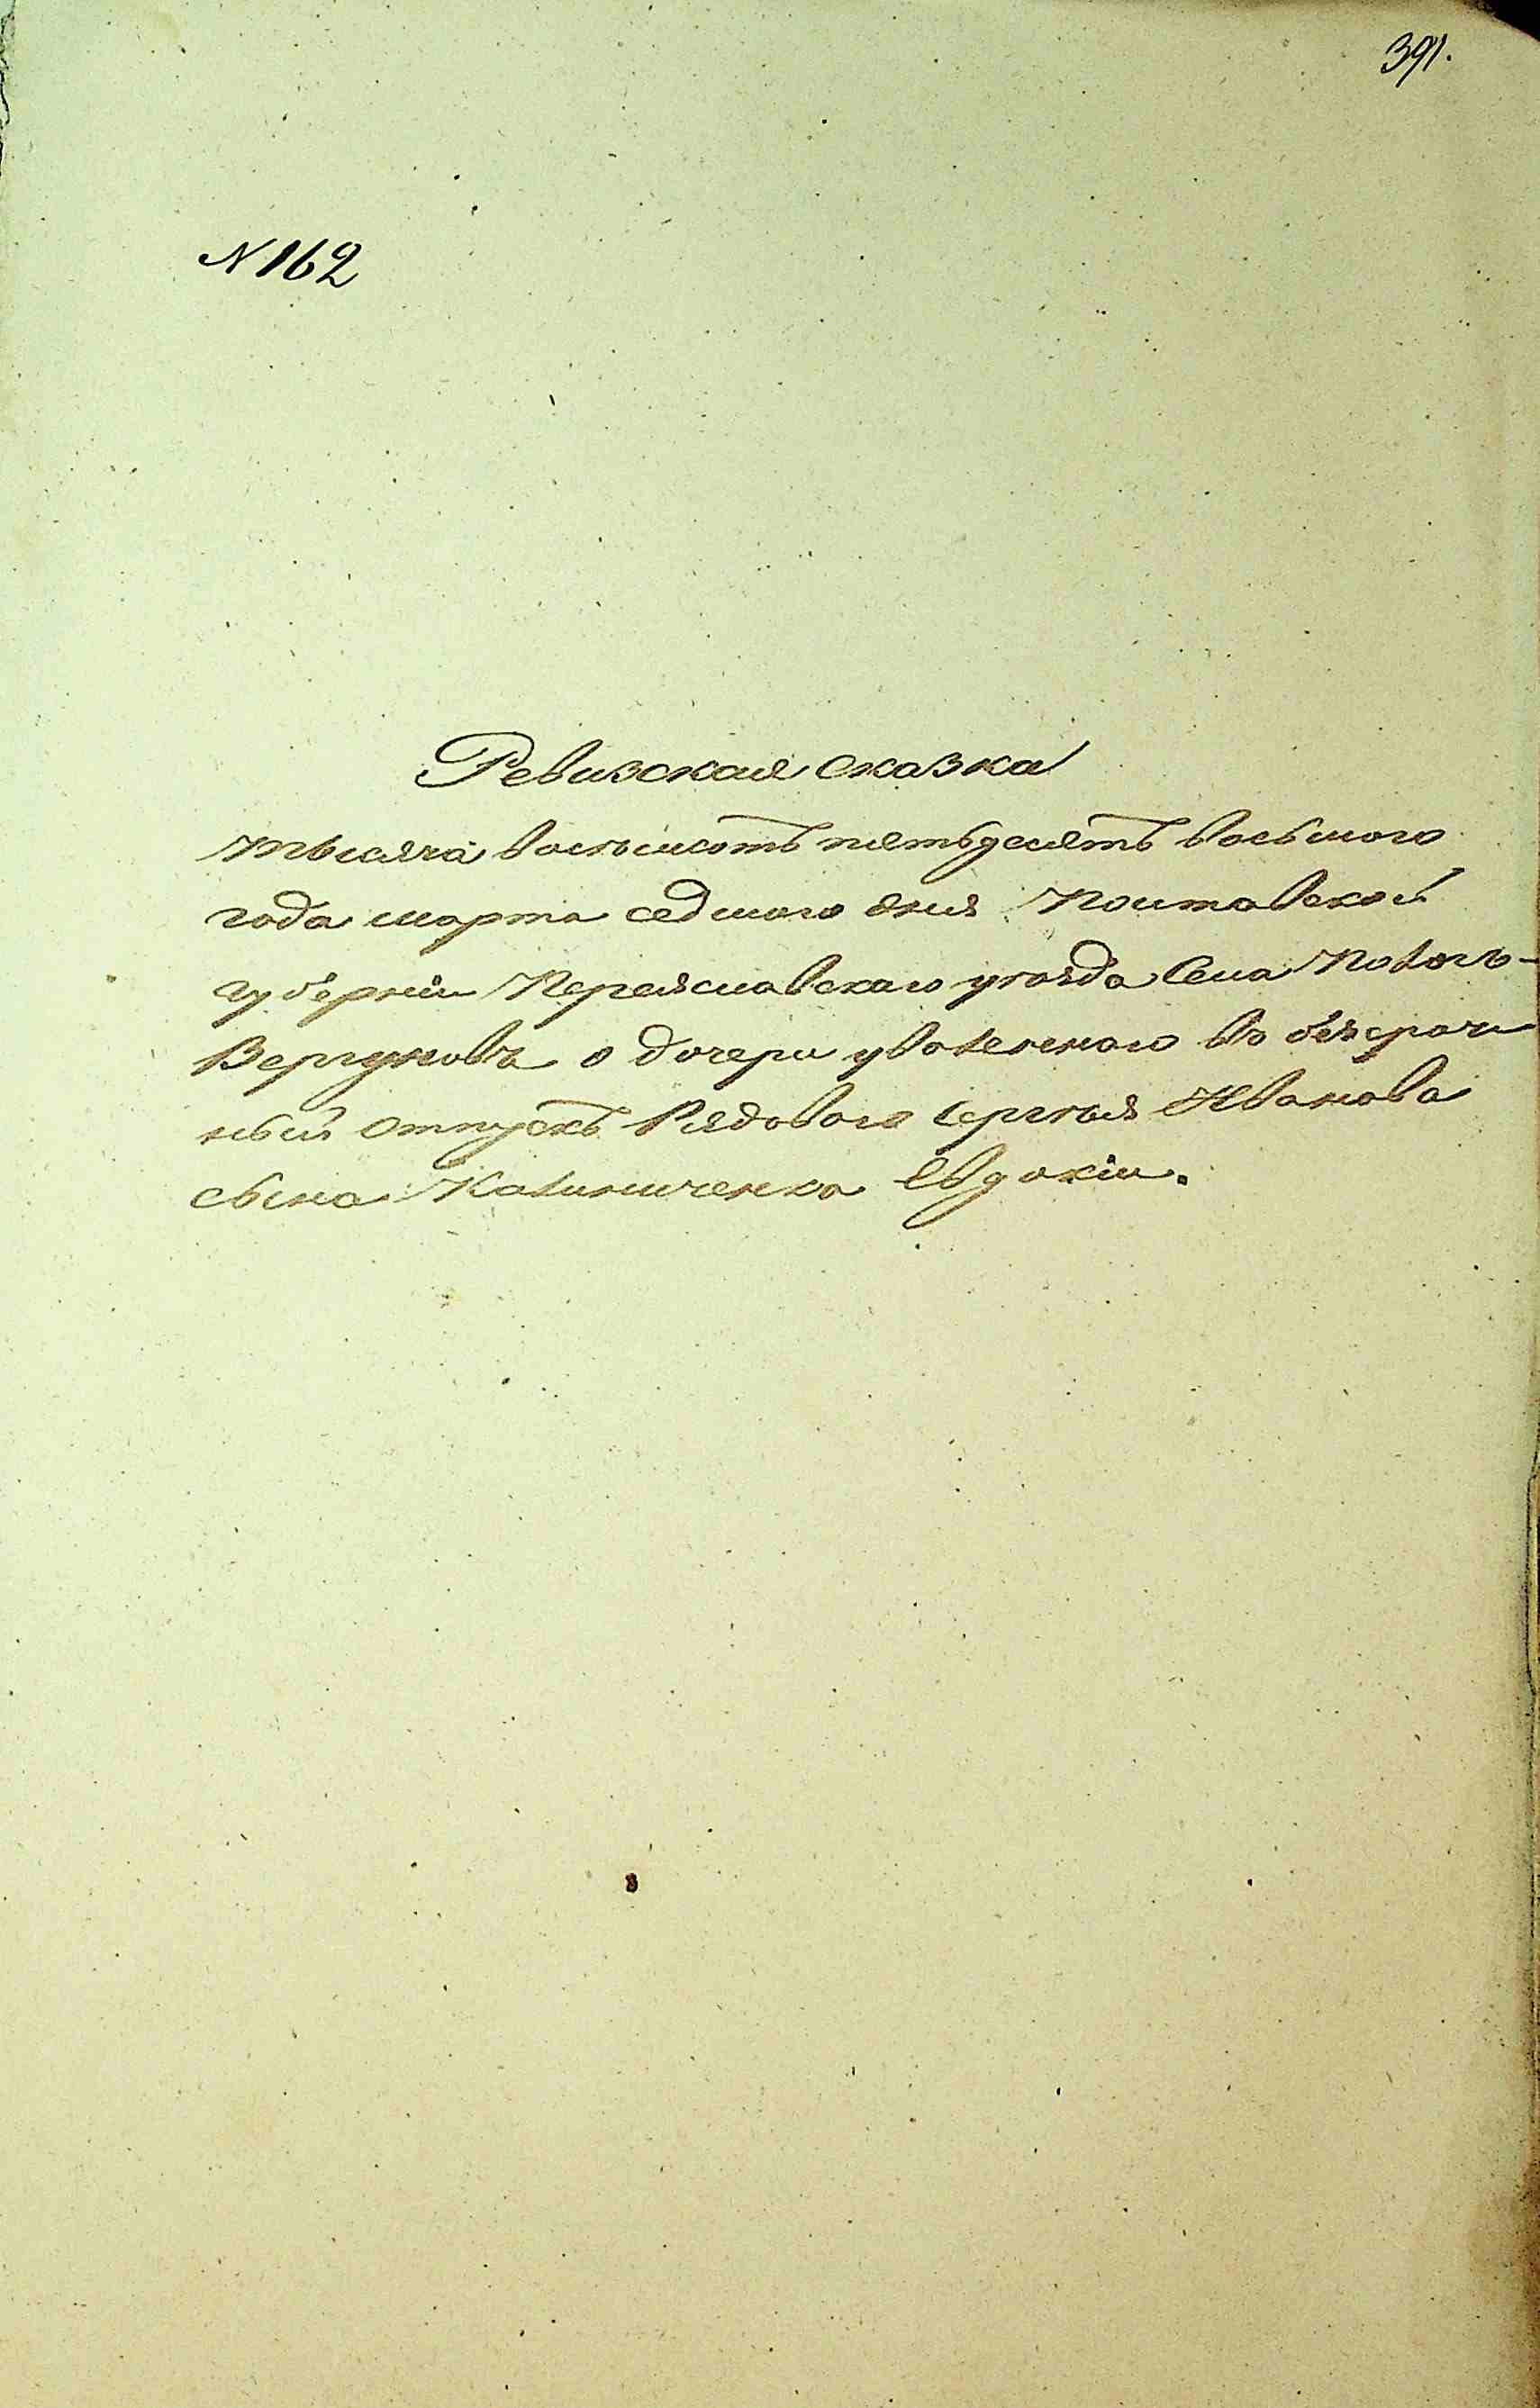 391.
N 162
Ревизская сказка
тысяча восьмсотъ пятьдесятъ восьмого
года марта седмого дня Полтавской
губерніи Переяславскаго уѣзда Села Пологъ-
Вергуновъ о дочери уволеного въ безсроч
ный отпускъ Рядового Сергѣя Иванова
сына Калиниченка Евдокіи.